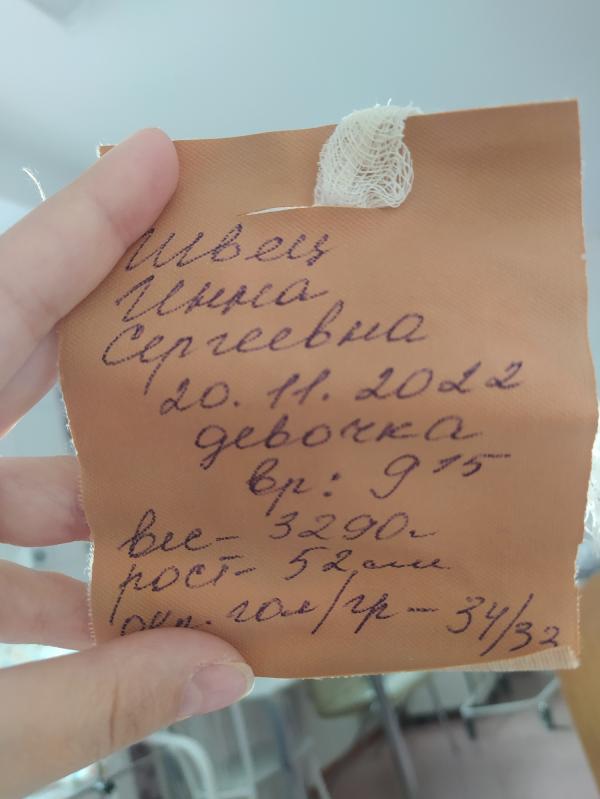 Швец
Инна
Сергеевна
20.11.2022
девочка
вр: 9 15
вес- 3290г
рост- 52 см
окр. гол/гр - 34/32